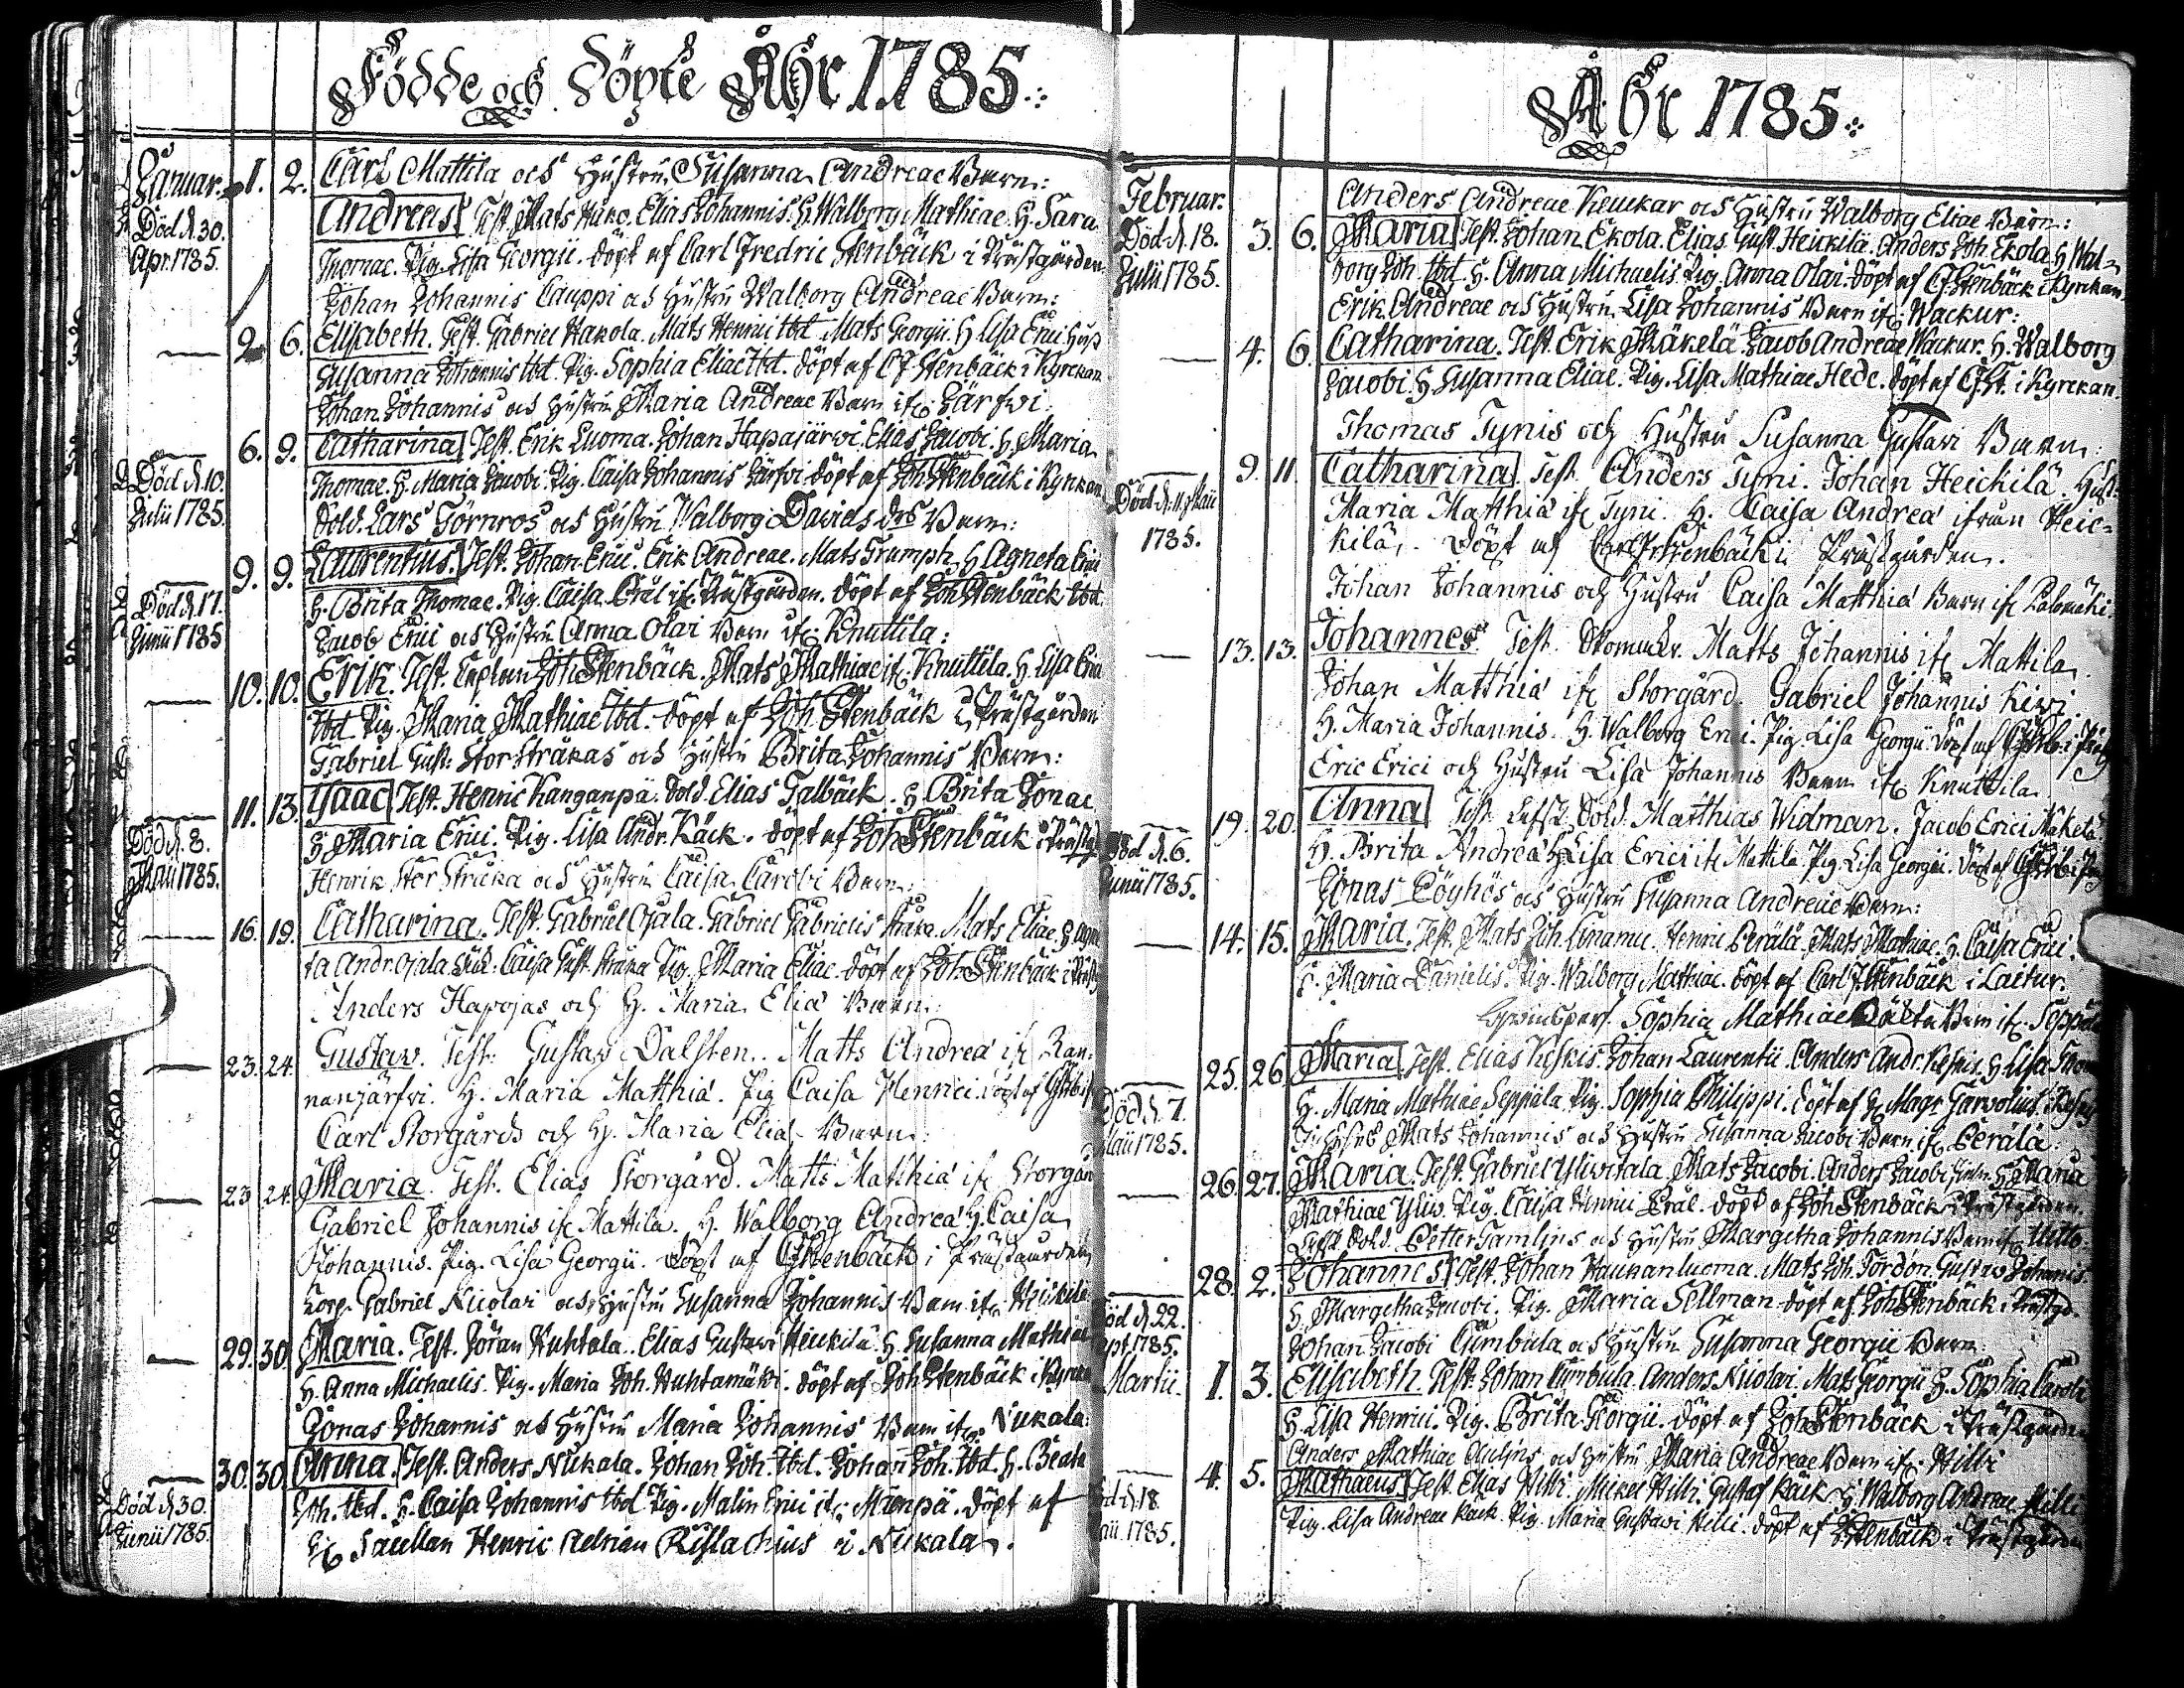 Födde och Döpte Åhr 1785.
Januar. 1. 2. Carl Mattila och Hustru Susanna Andreae Barn:
Död d. 30. Andreas Test. Mats Hako. Elias Johannis. H. Walborg Mathiae. H. Sara
Apr. 1785. Thomae. Pig. Lisa Georgii. döpt af Carl Fredric Stenbäck i Prästgården.
Johan Johannis Cauppi och Hustru Walborg Andreae Barn:
2. 6. Elisabeth. Test. Gabriel Hakola. Mats Henrici Ibd. Mats Georgii. H. Lisa Erici. Hust.
Susanna Johannis Ibd. Pig. Sophia Eliae Ibd. döpt af CF Stenbäck i Kyrckan
Johan Johannis och Hustru Maria Andreae Barn ifr. Järfwi:
6. 9. Catharina Test. Erik Luoma. Johan Hapajärwi. Elias Jacobi. H. Maria
Död d. 10. Thomae. H. Maria Jacobi. Pig. Caisa Johannis Järfwi döpt af Joh Stenbäck i Kyrkan.
Julii 1785. Sold. Lars Törnros och Hustru Walborg Davids dr Barn:
9. 9. Laurentius. Test. Johan Erici. Erik Andreae. Mats Trumph. H. Agneta Erici
Död d. 17. H. Brita Thomae. Pig. Caisa ifr. Prästgården. döpt af Joh Stenbäck Ibd.
Junii 1785 Jacob Erici och Hustru Anna Olai Barn ifr. Knuttila:
10. 10. Erik. Test. Caplan Joh Stenbäck. Mats Mathiae ifr. Knuttila. H. Lisa Erici
Ibd. Pig. Maria Mathiae Ibd. döpt af Joh. Stenbäck i Prästgården
Gabriel Gust: Storstråkas och Hustru Brita Johannis Barn:
11. 13. Isaac Test. Henric Kanganpä. Sold. Elias Talbäck. H. Brita Jonae
Död d. 8. H. Maria Erici. Pig. Lisa Andr. Käck. döpt af Joh Stenbäck i Prästg.
Maii 1785. Henrik Stor Stråka och Hustru Caisa Jacobi Barn:
16. 19. Catharina. Test. Gabriel Ojala. Gabriel Gabrielis Stråka. Mats Eliae. H. Agne
ta Andr. Ojala. Caisa Gust. Stråka Pig. Maria Eliae. döpt af Joh Stenbäck i Prästg
Anders Hapojas och H. Maria Eliae Barn:
23. 24. Gustaw. Test: Gustav Dalsten. Matts Andreae ifr Ran-
nanjärfvi. H. Maria Matthiae. Pig Caisa Henrici. döpt af
Carl Storgårds och H. Maria Eliae Barn:
23 24. Maria. Test. Elias Storgård. Matts Matthiae ifr Storgård
Gabriel Johannis ifr Mattila. H. Walborg Andreae. H. Caisa
Johannis. Pig. Lisa Georgii. döpt af CF Stenbäck i Prästgården
Corp. Gabriel Nicolai och Hustru Susanna Johannis Barn ifr. Heickilä
29. 30. Maria. Test. Göran Huhtala. Elias Gustavi Heickilä. H. Susanna Mathiae
H. Anna Michaelis. Pig. Maria Joh. Huhtamäki. döpt af Joh Stenbäck i Kyrckan
Jonas Johannis och Hustru Maria Johannis Barn ifr. Nukala:
30. 30. Anna. Test. Anders Nukala. Johan Joh. Ibd. Johan Joh. Ibd. H. Beata
Död d. 30. Joh. Ibd. H. Caisa Johannis Ibd. Pig. Malin Erici ifr. Mienpä. döpt af
Junii 1785. Hr Sacellan Henric Adrian Rislachius i Nukala.
Åhr 1785.
Februar. Anders Andreae Keuckar och Hustru Walborg Eliae Barn:
Död d. 18. 3. 6. Maria Test. Johan Ekola. Elias Gust. Heickilä. Anders Joh. Ekola. H. Wal-
Julii 1785. borg Joh. Ibd. H. Anna Michaelis. Pig. Anna Olai. döpt af CF Stenbäck i Kyrckan.
Erik Andreae och Hustru Lisa Johannis Barn ifr. Wackur:
4. 6. Catharina. Test. Erik Mäkelä. Jacob Andreae Wackur. H. Walborg
Jacobi. H. Susanna Eliae. Pig. Lisa Mathiae Hede. döpt af CFSt. i Kyrckan.
Thomas Tynis och Hustru Susanna Gustavi Barn:
9. 11. Catharina. Test. Anders Tyni. Johan Heickilä. Hust.
Död d. 11. Maii Maria Matthiae ifr Tyni. H. Caisa Andreae ifrån Heic-
1785. kilä. Döpt af Carl Fr Stenbäck i Prästgården.
Johan Johannis och Hustru Caisa Matthiae Barn ifr Palomäki.
13. 13. Johannes. Test. Skomak. Matts Johannis ifr Mattila.
Johan Matthiae ifr Storgård. Gabriel Johannis Kivi.
H. Maria Johannis. H. Walborg Erici. Pig. Lisa Georgii. döpt af
Eric Erici och Hustru Lisa Johannis Barn ifr Knuttila.
19. 20. Anna Test. Sold. Matthias Widman. Jacob Erici Mäkelä
Död d. 6. H. Brita Andreae. H. Lisa Erici ifr Mattila. Pig. Lisa Georgii. Döpt af
Junii 1785. Jonas Pöyhös och Hustru Susanna Andreae Barn:
14. 15. Maria. Test. Mats Joh. Cinamu. Henric Perälä. Mats Mathiae. H. Caisa Erici.
H. Maria Danielis. Pig. Walborg Mathiae. döpt af Carl F. Stenbäck i Laitur.
Sophia Mathiae Barn ifr. Seppälä
25. 26. Maria Test. Elias Keskis. Johan Laurentii. Anders Andr. Keskis. H. Lisa
Död d. 7. H. Maria Mathiae Seppälä. Pig. Sophia Philippi. döpt af Hr Magr Garvolius i
Maii 1785. Mats Johannis och Hustru Susanna Jacobi Barn ifr Perälä:
26. 27. Maria. Test. Gabriel Yliwitala. Mats Jacobi. Anders Jacobi. H. Maria
Mathiae Yliw. Pig. Caisa Henrici. döpt af Joh Stenbäck i Prästgården.
Sold. Petter Gamlins och Hustru Margetha Johannis Barn ifr
28. 2. Johannes Test. Johan Haukanluoma. Mats Joh. Tordon. Gustav Johannis.
Död d. 22. H. Margetha Jacobi. Pig. Maria Sellman. döpt af Joh Stenbäck i Prästgd.
Sept. 1785. Johan Jacobi Cumbula och Hustru Susanna Georgii Barn:
Martii. 1. 3. Elisabeth. Test. Johan Cumbula. Anders Nicolai. Mats Georgii. H. Sophia Caroli
H. Lisa Henrici. Pig. Brita Georgii. döpt af Joh Stenbäck i Prästgården
Anders Mathiae och Hustru Maria Andreae Barn ifr. Hilli
4. 5. Mathaeus Test. Elias Hilli. Mickel Hilli. Gustaf Käck. H. Walborg Andreae Hilli
Död d. 18. Maii 1785. Pig. Lisa Andreae Käck. Pig. Maria Gustavi Hilli. döpt af Stenbäck i Prästgården